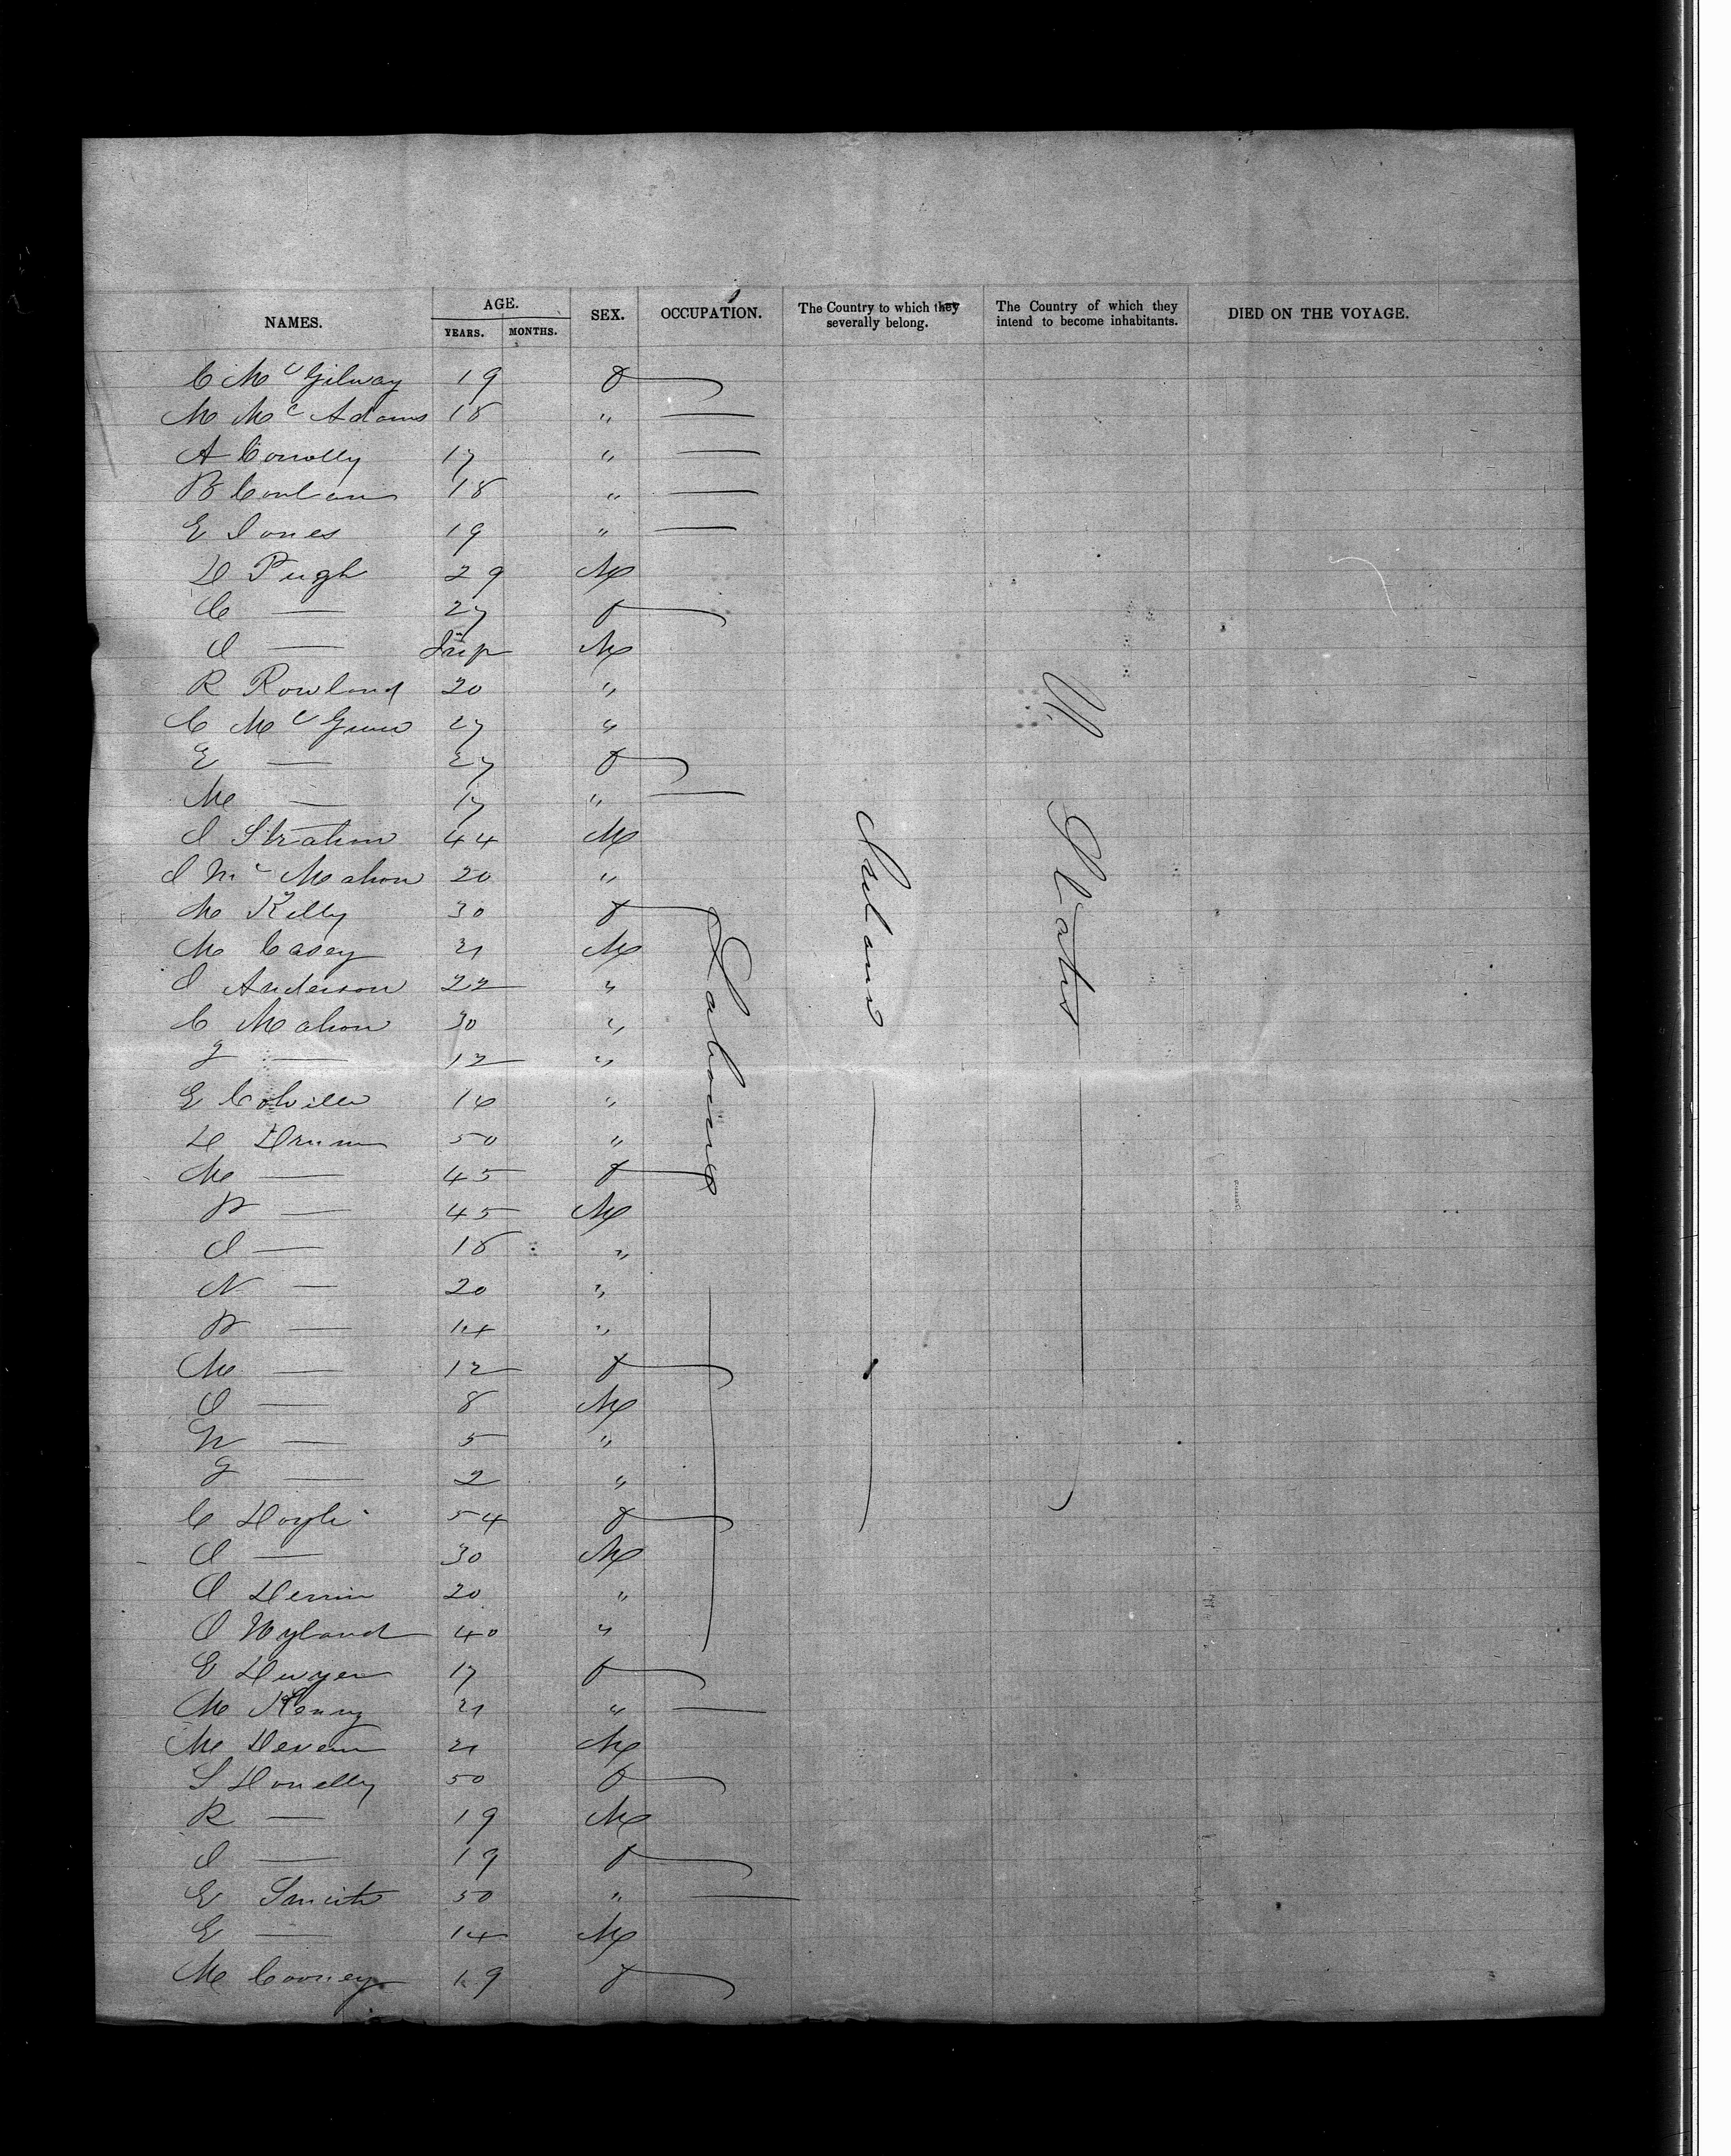 NAMES. AGE. SEX. OCCUPATION. The Country to which they severally belong. The Country of which they intend to become inhabitants. DIED ON THE VOYAGE.
YEARS. MONTHS.
C McGilway 19 F
M McAdams 18 " —
A Conolly 17 " —
B 18 " —
E Jones 19 " —
D Pugh 29 M
C — 27 F
J — Inf M
R Rowland 20 "
C McGunn 27 "
E — 27 F
M — 17 " —
J Strahan 44 M
J McMahon 20 "
M Kelly 30 F
M Casey 21 M
J Anderson 22 "
C Mahon 30 "
J — 12 "
E Colville 16 "
D Drum 50 "
M — 45 F
P — 45 M
J — 18 "
N — 20 "
P — 14 "
M — 12 F
J — 8 M
W — 5 "
J — 2 "
C Doyle 54 F
J — 30 M
J 20 "
J Hyland 40 "
E Dwyer 17 F
M Kenny 21 " —
M Deven 21 M
S Donelly 50 F
R — 19 M
J — 19 F
E Smith 50 " —
E — 14 M
M Cooney 19 F
Labourer
Ireland
U. States